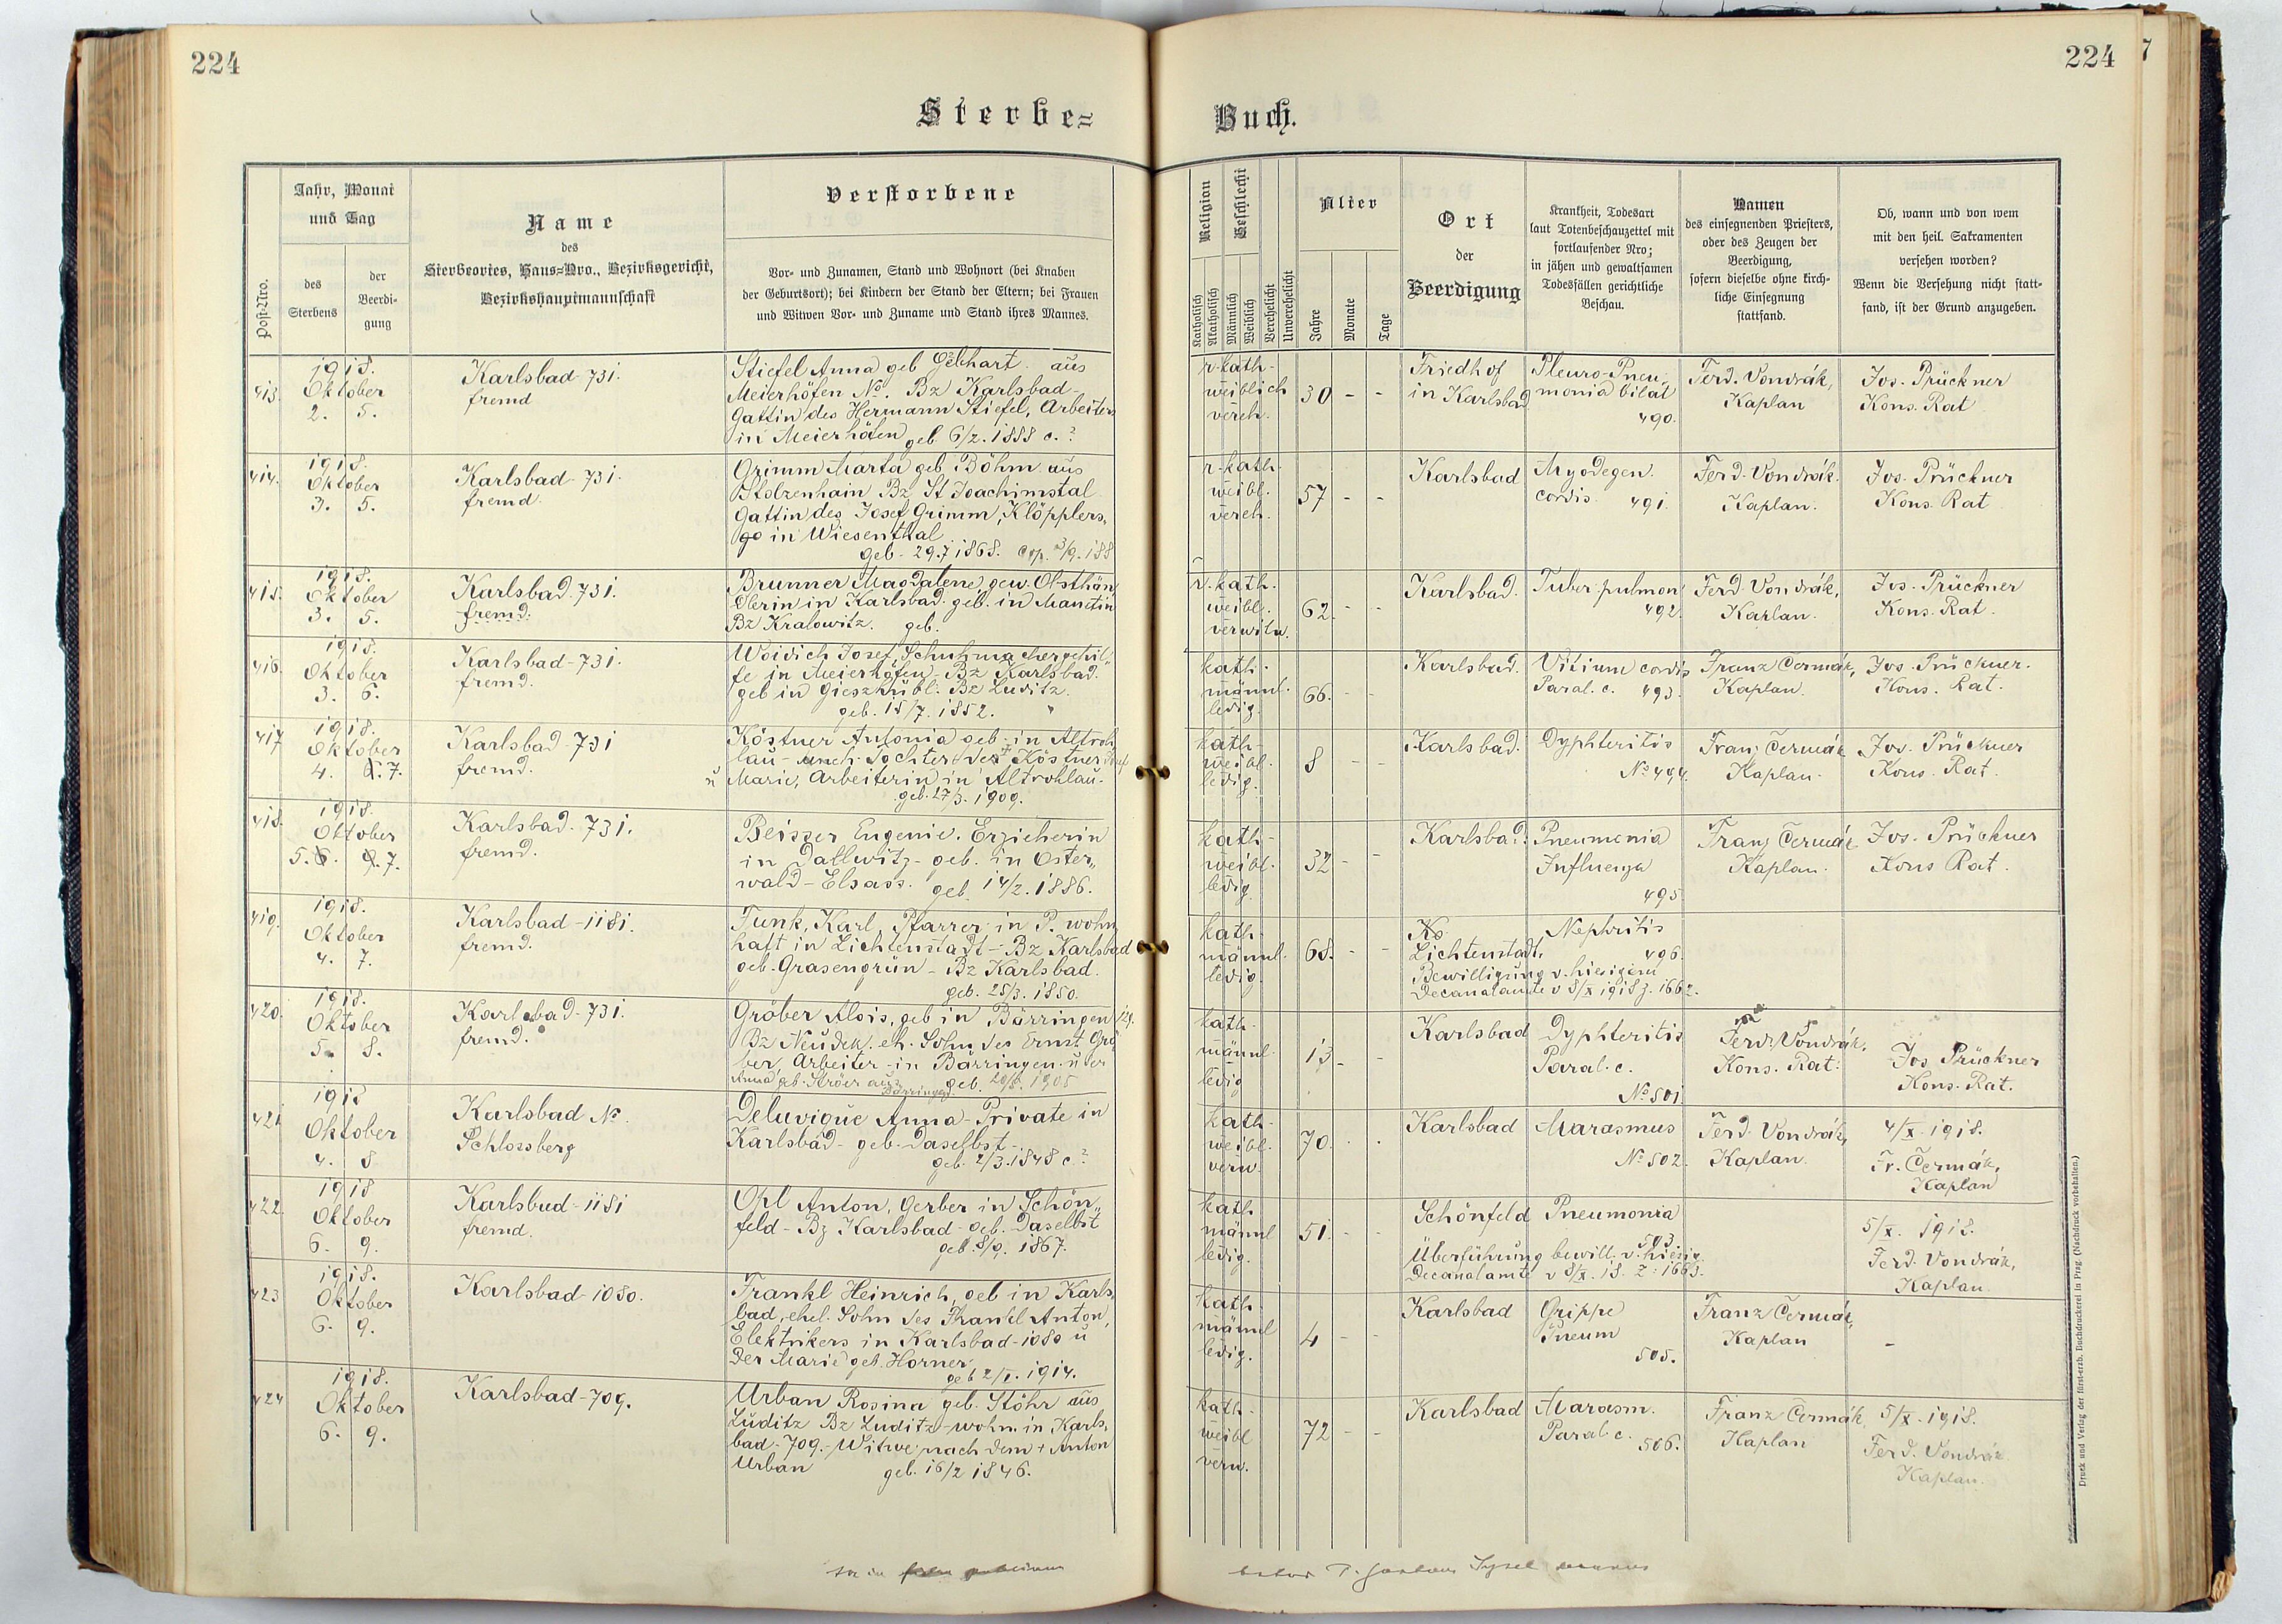 224
224
7
Sterbe=
Buch.
Post-Nro.
Jahr, Monat
und Tag
des
Sterbens
der
Beerdi-
gung
Name
des
Sterbeortes, Haus=Nro., Bezirksgericht,
Bezirkshauptmannschaft
Verstorbene
Vor- und Zunamen, Stand und Wohnort (bei Knaben
der Geburtsort); bei Kindern der Stand der Eltern; bei Frauen
und Witwen Vor- und Zuname und Stand ihres Mannes.
Religion
Katholisch
Akatholisch
Geschlecht
Männlich
Weiblich
Verehelicht
Unverehelicht
Alter
Jahre
Monate
Tage
Ort
der
Beerdigung
Krankheit, Todesart
laut Totenbeschauzettel mit
fortlaufender Nro;
in jähen und gewaltsamen
Todesfällen gerichtliche
Beschau.
Namen
des einsegnenden Priesters,
oder des Zeugen der
Beerdigung,
sofern dieselbe ohne kirch-
liche Einsegnung
stattfand.
Ob, wann und von wem
mit den heil. Sakramenten
versehen worden?
Wenn die Versehung nicht statt-
fand, ist der Grund anzugeben.
413.
1918.
Oktober
2. 5.
Karlsbad-731.
fremd
Stiefel Anna geb Gebhart aus
Meierhöfen No. Bz Karlsbad-
Gattin des Hermann Stiefel, Arbeiters
in Meierhöfen geb. 6/2. 1888 c.?
r-kath-
weiblich
vereh.
30 - -
Friedhof
in Karlsbad
Pleuro-Pneu-
monia bilat
490.
Ferd. Vondrák,
Kaplan
Jos. Prückner
Kons. Rat
414.
1918.
Oktober
3. 5.
Karlsbad-731.
fremd.
Grimm Marta geb. Böhm aus
Stolzenhain Bz St Joachimstal
Gattin des Josef Grimm, Klöpplers,
in Wiesenthal
geb-29.7 1868. Cop. 3/9. 188
r-kath-
weibl.
vereh.
57 - -
Karlsbad
Myodegen.
cordis. 491.
Ferd. Vondrák.
Kaplan.
Jos. Prückner
Kons. Rat
415.
1918.
Oktober
3. 5.
Karlsbad.731.
fremd.
Brunner Magdalene, gew. Obsthän
dlerin in Karlsbad. geb. in Manetin
Bz Kralowitz. geb.
r.kath.
weibl.
verwitw.
62. - -
Karlsbad.
Tuber. pulmon
492.
Ferd Vondrák,
Kaplan.
Jos. Prückner
Kons. Rat.
416.
1918.
Oktober
3. 6.
Karlsbad-731.
fremd.
Woidich Josef, Schuhmachergehil-
fe in Meierhöfen-Bz Karlsbad.
geb in Gieszhübl. Bz Luditz.
geb. 15/7. 1852.
kath.
männl.
ledig.
66. - -
Karlsbad.
Vitium cordis
Paral. c. 493.
Franz Čermák,
Kaplan.
Jos. Prückner.
Kons. Rat.
417
1918.
Oktober
4. 7.
Karlsbad-731
fremd.
Köstner Antonia geb. in Altroh
lau- Tochter des Köstner
u Marie, Arbeiterin in Altrohlau-
geb. 27/3. 1909.
kath-
weibl.
ledig.
8 - -
Karlsbad.
Dyphteritis
No 494.
Franz Čermák
Kaplan.
Jos. Prückner
Kons. Rat.
418.
1918.
Oktober
5. 7.
Karlsbad-731.
fremd.
Beisser Eugenie. Erzieherin
in Dallwitz-geb. in Oster,,
wald-Elsass. geb. 14/2. 1886.
kath-
weibl.
ledig
32 - -
Karlsbad.
Pneumonia
Influenza
495
Franz Čermák
Kaplan.
Jos. Prückner
Kons Rat.
419.
1918.
Oktober
4. 7.
Karlsbad-1181.
fremd.
Funk, Karl, Pfarrer in P. wohn
haft in Lichtenstadt-Bz Karlsbad
geb-Grasengrün-Bz Karlsbad.
geb. 25/3. 1850.
kath-
männl.
ledig.
68. - -
Lichtenstadt,
Nephritis
496.
Bewilligung v. hiesigen
Decanalamte v 8/X 1918 z. 1662.
420.
1918.
Oktober
5. 8.
Karlsbad-731.
fremd.
Gröber Alois, geb in Bärringen
Bz Neudek. eh. Sohn des Ernst Grö
ber Arbeiter-in Bärringen. u der
Anna geb. Ströer aus
Bärringen. geb. 1905
kath-
männl.
ledig
13 - -
Karlsbad
Dyphteritis
Paral. c.
No 501.
Ferd. Vondrák,
Kons. Rat.
Jos Prückner
Kons. Rat.
421
1918
Oktober
4. 8
Karlsbad No.
Schlossberg
Deluvigue Anna-Private in
Karlsbad-geb-daselbst-
geb. 2/3. 1848 c?
kath-
weibl.
verw.
70. - -
Karlsbad
Marasmus
No 502.
Ferd. Vondrák,
Kaplan.
4/X. 1918.
Fr. Čermák,
Kaplan
422.
1918
Oktober
6. 9.
Karlsbad-1181
fremd.
Opl Anton, Gerber in Schön,,
feld-Bz Karlsbad-geb. daselbst
geb. 8/9. 1867.
kath
männl
ledig.
51. - -
Schönfeld
Pneumonia
503.
Überführung bewill. v. hiesig.
Decanalamte v 8/X. 18. Z: 1663.
5/X. 1918.
Ferd. Vondrák,
Kaplan.
423
1918.
Oktober
6. 9.
Karlsbad-1080.
Frankl Heinrich, geb in Karls,
bad, ehel. Sohn des Frankl Anton,
Elektrikers in Karlsbad-1080 u
der Marie geb. Horner
geb 2/X. 1914.
kath.
männl
ledig.
4 - -
Karlsbad
Grippe
Pneum
505.
Franz Čermák,
Kaplan
-
424
1918.
Oktober
6. 9.
Karlsbad-709.
Urban Rosina geb. Stöhr aus
Luditz Bz Luditz-wohn. in Karls,
bad-709.-Witwe nach dem + Anton
Urban geb. 16/2 1846.
kath-
weibl
verw.
72 - -
Karlsbad
Marasm.
Paral. c.
506.
Franz Čermák
Kaplan
5/X. 1918.
Ferd. Vondrák
Kaplan.
Druck und Verlag der fürst-erzb. Buchdruckerei in Prag. (Nachdruck vorbehalten.)